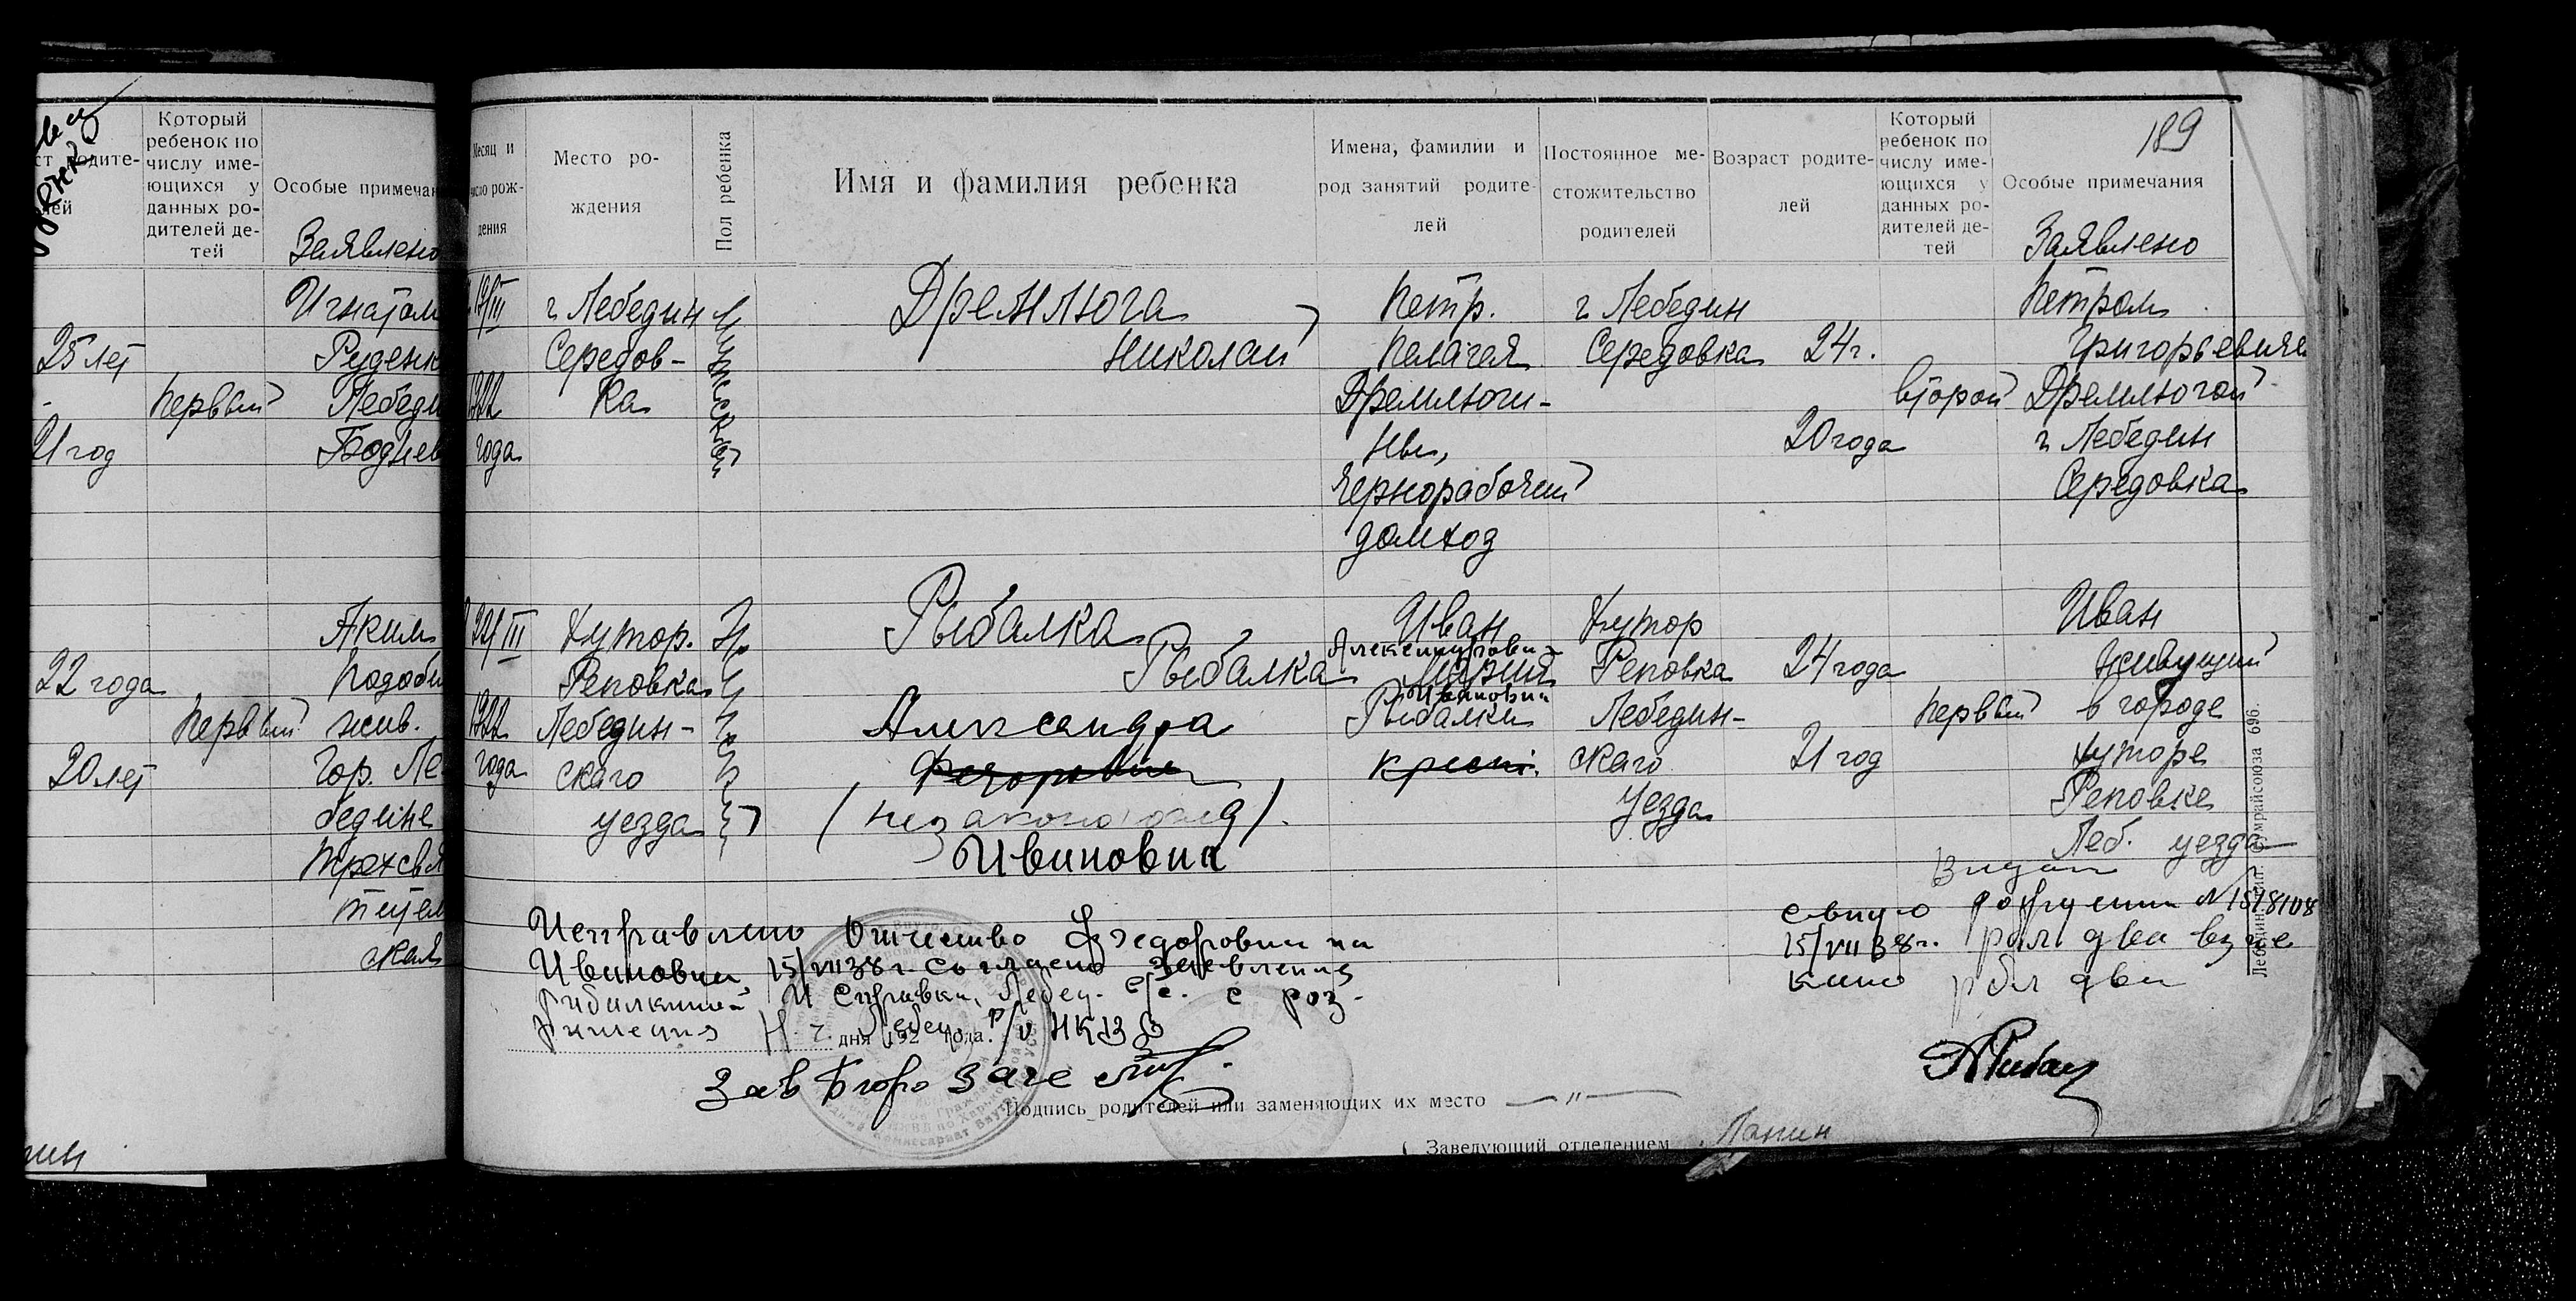 Который
ребенок по
числу име-
ющихся у
данных ро-
дителей де-
тей
Особые примечан
Заявлено
Игнатом
25 лет
Руденк
Первый
Лебеди
21 год
Аким
22 года
Подоб
Первый
жив.
20 лет
Гор. Ле
бедине
189
Месяц и
число рож-
дения
Место ро-
ждения
Пол ребенка
Имя и фамилия ребенка
Имена, фамилии и
род занятий родите-
лей
Постоянное ме-
стожительство
родителей
Возраст родите-
лей
Который
ребенок по
числу име-
ющихся у
данных ро-
дителей де-
тей
Особые примечания
Заявлено
19/III
1922
года
г Лебедин
Середов-
ка
Мужской
Дремлюга
Николай
Петр.
Пелагея
Дремлюги-
ны,
Чернорабочий
домхоз
г Лебедин
Середовка
24 г.
20 года
второй
Петром
Григорьевичем
Дремлюгой
г Лебедин
Середовка
22/III
1922
года
Хутор.
Реповка
Лебедин-
скаго
уезда
Женский
Рыбалка
Рыбалка
Александра
Федоровна
(незаконорожд)
Ивановна
Иван
Александрович
Мария
Ивановна
Рыбалки
крест.
Хутор
Реповка
Лебедин-
скаго
Уезда
24 года
21 год
Первый
Иван
живущий
в городе
хуторе
Реповке
Леб. уезда
Исправлено Отчество Федоровна на
Ивановна 15/VII 38 г. согласно заявления
Рибалкиной и справки Лебед. с/с. с роз-
решения Н. г. Лебед. р/о НКВД
дня 192 года.
Зав Бюро Загс
Подпись родителей или заменяющих их место — „ —
Заведующий отделением Лапин
15/VII 38 г. рбл два взыс
кано рбл два
Лебединская
райсоюза 696.